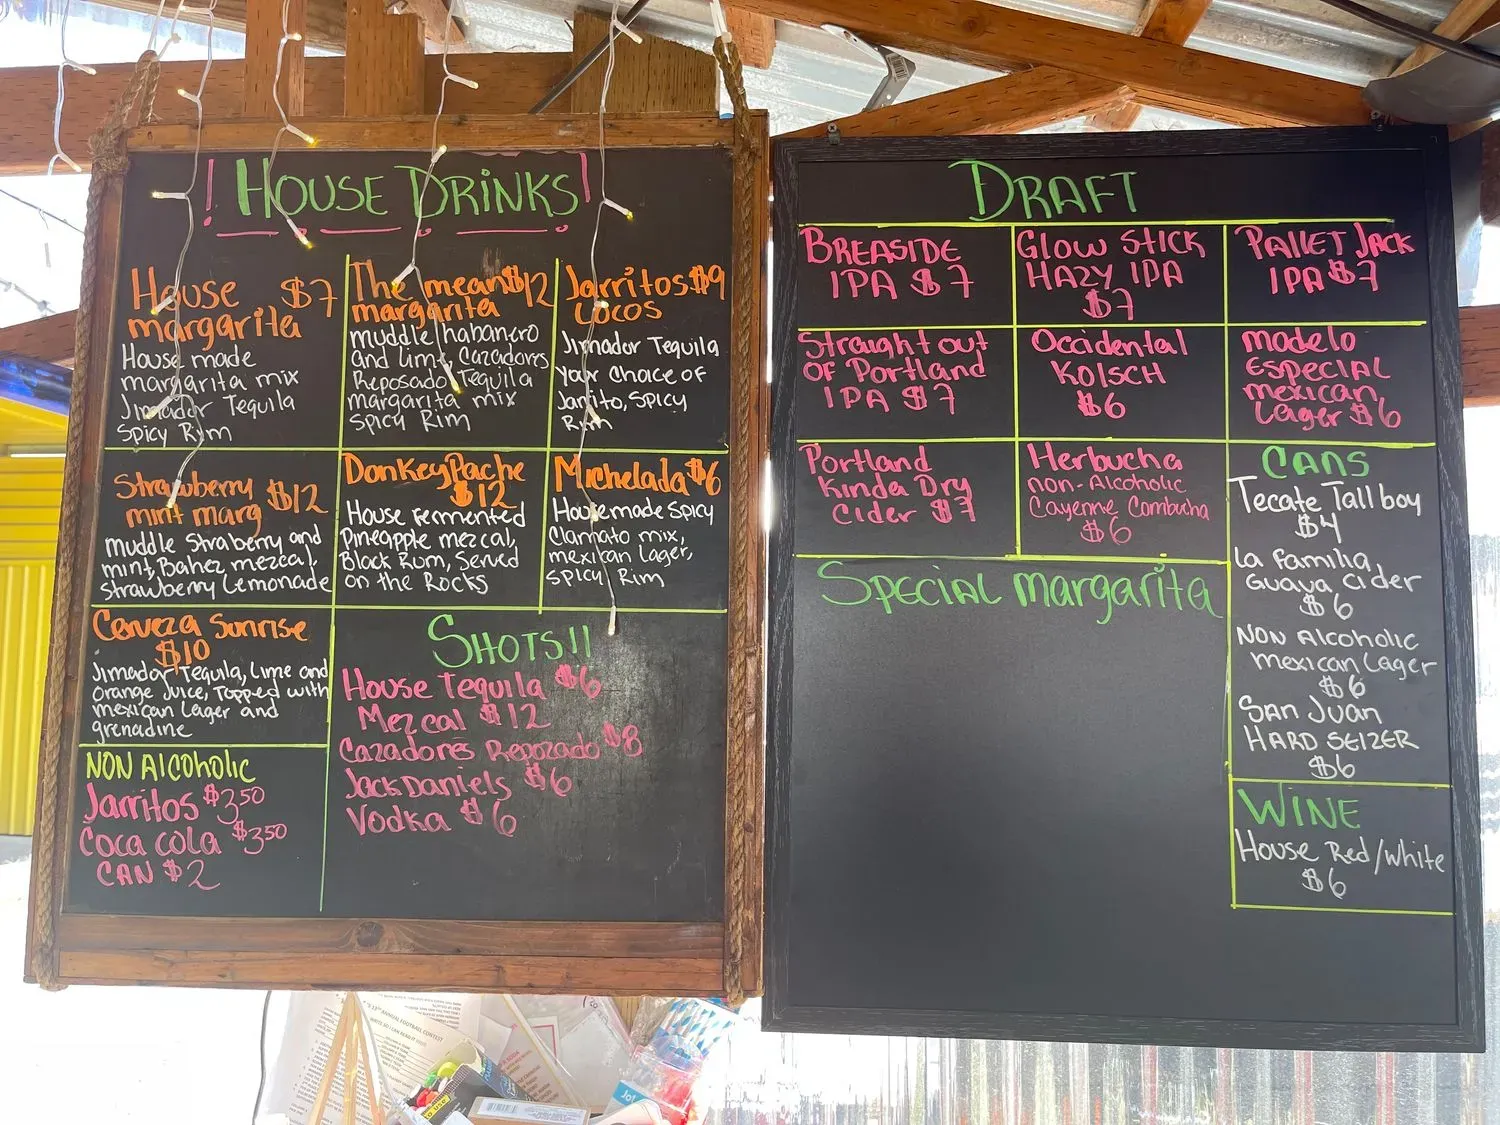 ! HOUSE DRINKS!
House $7
margarita
House made
margarita mix
Jimador Tequila
Spicy Rim
The mean $12
margarita
muddle habanero
and lime, Cazadores
Reposado Tequila
margarita mix
Spicy Rim
Jarritos $9
Locos
Jimador Tequila
Your Choice of
Jarrito, Spicy
Rim
Strawberry $12
mint marg
muddle Straberry and
mint, Bahez mezcal,
Strawberry Lemonade
Donkey Pache
$12
House Fermented
Pineapple mezcal,
Black Rum, Served
on the Rocks
Michelada $6
House made Spicy
Clamato mix,
mexican Lager,
Spicy Rim
Cerveza Sonrise
$10
Jimador Tequila, Lime and
orange Juice, Topped with
mexican Lager and
grenadine
NON Alcoholic
Jarritos $3.50
Coca cola $3.50
CAN $2
SHOTS!!
House Tequila $6
Mezcal $12
Cazadores Repozado $8
Jack Daniels $6
Vodka $6
DRAFT
BREASIDE
IPA $7
GLOW STICK
HAZY IPA
$7
PALLET JACK
IPA $7
Straight out
OF Portland
IPA $7
Occidental
KOLSCH
$6
modelo
ESPECIAL
mexican
Lager $6
Portland
Kinda Dry
Cider $7
Herbucha
non-Alcoholic
Cayenne Combucha
$6
CANS
Tecate Tall boy
$4
La Familia
Guava Cider
$6
NON Alcoholic
mexican Lager
$6
SAN JUAN
HARD SEIZER
$6
SPECIAL margarita
WINE
House Red/white
$6
ANNUAL FOOTBALL CONTEST
WRITE SO I CAN READ IT